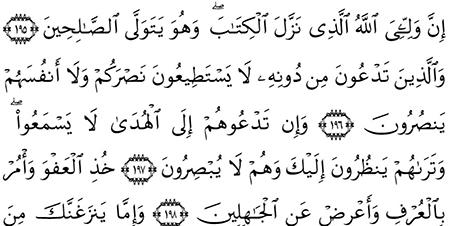 إِنَّ وَلِـِّۧيَ ٱللَّهُ ٱلَّذِى نَزَّلَ ٱلْكِتَٰبَۖ وَهُوَ يَتَوَلَّى ٱلصَّٰلِحِينَ ١٩٥
وَٱلَّذِينَ تَدْعُونَ مِن دُونِهِۦ لَا يَسْتَطِيعُونَ نَصْرَكُمْ وَلَا أَنفُسَهُمْ
يَنصُرُونَ ١٩٦ وَإِن تَدْعُوهُمْ إِلَى ٱلْهُدَىٰ لَا يَسْمَعُواْۖ
وَتَرَىٰهُمْ يَنظُرُونَ إِلَيْكَ وَهُمْ لَا يُبْصِرُونَ ١٩٧ خُذِ ٱلْعَفْوَ وَأْمُرْ
بِٱلْعُرْفِ وَأَعْرِضْ عَنِ ٱلْجَٰهِلِينَ ١٩٨ وَإِمَّا يَنزَغَنَّكَ مِنَ